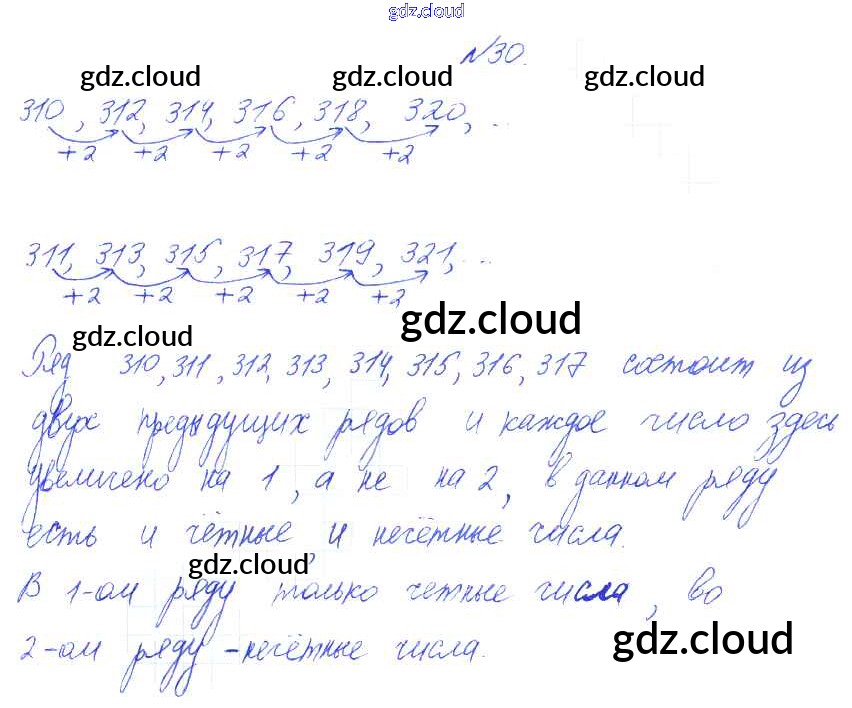 gdz.cloud
№30.
gdz.cloud gdz.cloud gdz.cloud
310, 312, 314, 316, 318, 320, ...
+2 +2 +2 +2 +2
311, 313, 315, 317, 319, 321, ...
+2 +2 +2 +2 +2
gdz.cloud
gdz.cloud
Ряд 310, 311, 312, 313, 314, 315, 316, 317 состоит из
двух предыдущих рядов и каждое число здесь
увеличено на 1, а не на 2, в данном ряду
есть и чётные и нечётные числа.
gdz.cloud
В 1-ом ряду только четные числа, во
2-ом ряду - нечётные числа.
gdz.cloud